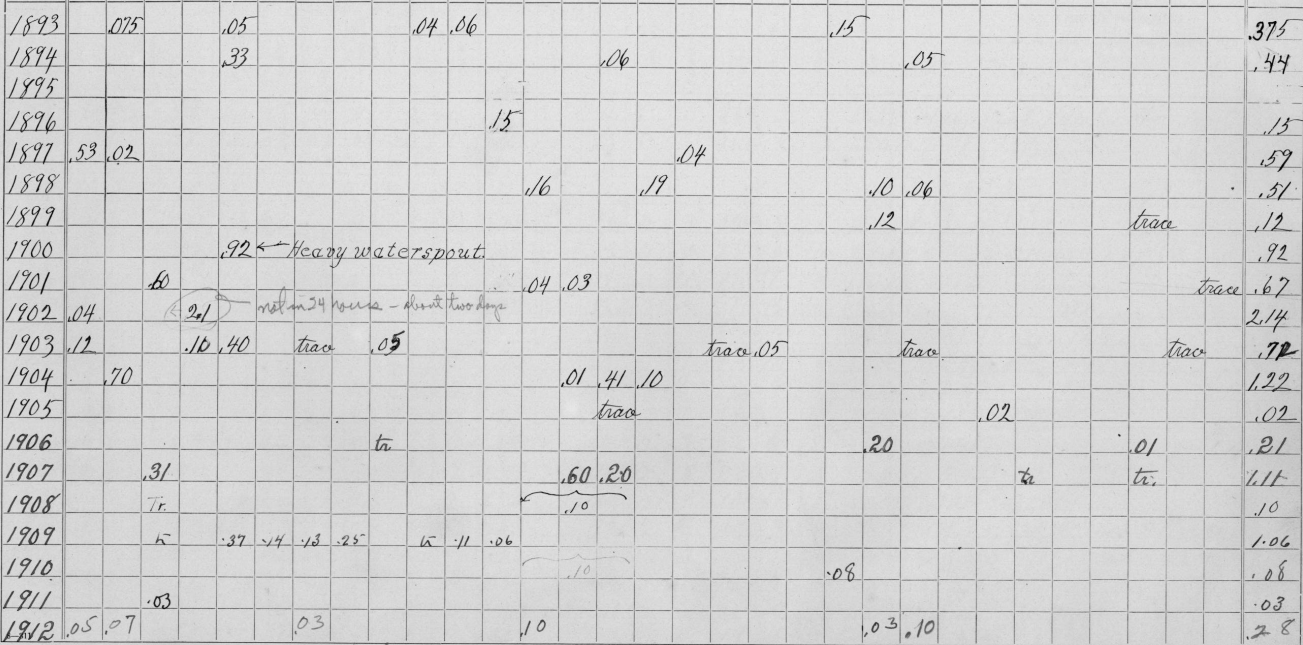 1893 .075 .05 .04 .06 .15 .375
1894 .33 .06 .05 .44
1895
1896 .15 .15
1897 .53 .02 .04 .59
1898 .16 .19 .10 .06 .51
1899 .12 trace .12
1900 .92 ← Heavy waterspout. .92
1901 .60 .04 .03 trace .67
1902 .04 2.1 not in 24 hours - about two days 2.14
1903 .12 .10 .40 trace .05 trace .05 trace trace .72
1904 .70 .01 .41 .10 1.22
1905 trace .02 .02
1906 tr .20 .01 .21
1907 .31 .60 .20 tr tr. 1.11
1908 Tr. .10 .10
1909 tr .37 .14 .13 .25 tr .11 .06 1.06
1910 .10 .08 .08
1911 .03 .03
1912 .05 .07 .03 .10 .03 .10 .28